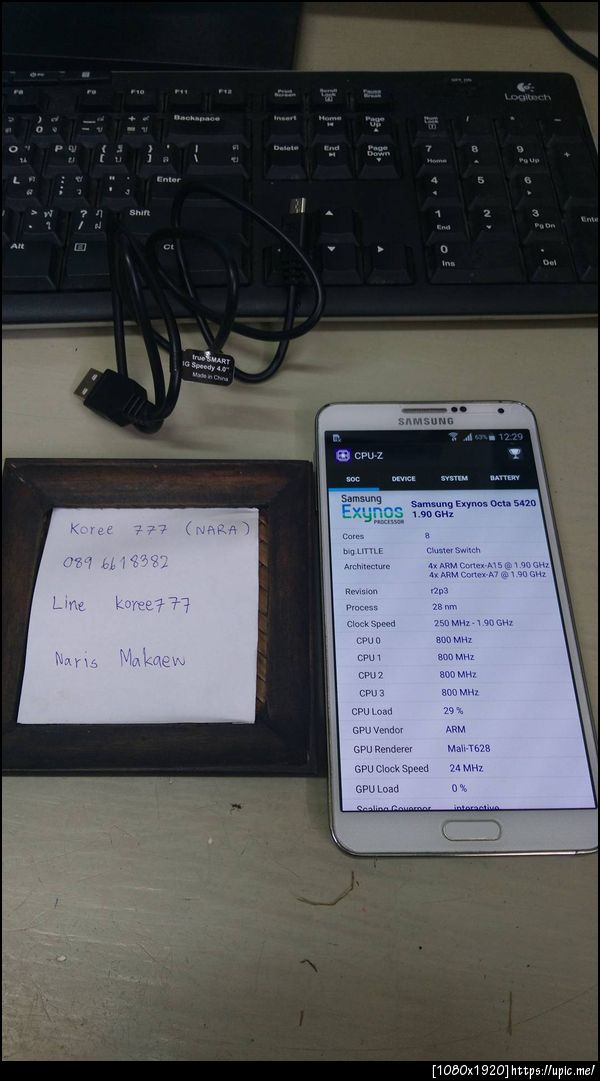 F8 F9 F10 F11 F12 Print Screen Scroll Lock Pause Break
Logitech
Backspace Insert Home Page Up Num Lock / * -
Delete End Page Down 7 Home 8 9 Pg Up +
Enter 4 5 6
Shift 1 End 2 3 Pg Dn Enter
Alt 0 Ins . Del
true SMART
IG Speedy 4.0"
Made in China
SAMSUNG
63% 12:29
CPU-Z
SOC DEVICE SYSTEM BATTERY
Samsung
Exynos
PROCESSOR
Samsung Exynos Octa 5420
1.90 GHz
Cores 8
big.LITTLE Cluster Switch
Architecture 4x ARM Cortex-A15 @ 1.90 GHz
4x ARM Cortex-A7 @ 1.90 GHz
Revision r2p3
Process 28 nm
Clock Speed 250 MHz - 1.90 GHz
CPU 0 800 MHz
CPU 1 800 MHz
CPU 2 800 MHz
CPU 3 800 MHz
CPU Load 29 %
GPU Vendor ARM
GPU Renderer Mali-T628
GPU Clock Speed 24 MHz
GPU Load 0 %
Scaling Governor interactive
Koree 777 (NARA)
089 6618382
Line koree777
Naris Makaew
[1080x1920] https://upic.me/